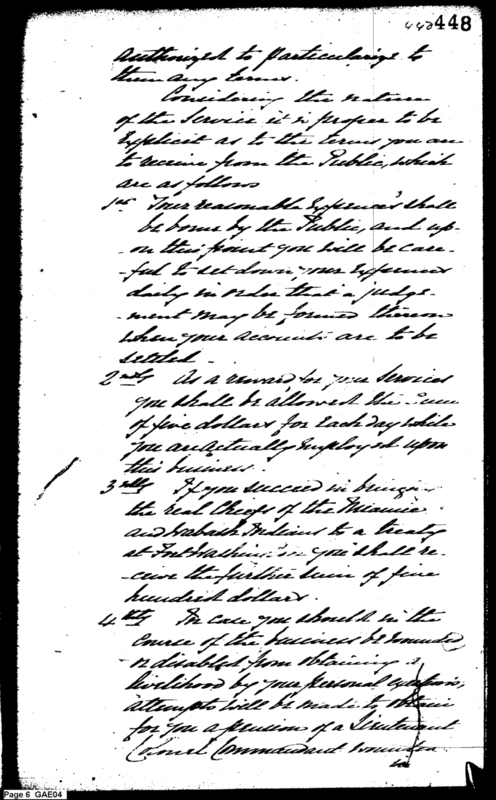 442 448
authorized to particularize to
them any terms.
Considering the nature
of the Service it is proper to be
Explicit as to the terms you are
to receive from the Public, which
are as follows
1st Your reasonable Expences shall
be borne by the Public, and up-
-on this point you will be care-
-ful to set down your Expences
daily in order that a judge-
-ment may be formed thereon
when your accounts are to be
settled.
2ndly As a reward for your Services
you shall be allowed the Sum
of five dollars for Each day while
you are actually Employed upon
this business.
3rdly If you succeed in bringing
the real Cheefs of the Miamie
and Wabash Indians to a treaty
at Fort Washington you shall re-
-ceive the further sum of five
hundred dollars.
4thly In case you should in the
course of the business be wounded
or disabled from obtaining a
livelihood by your personal exertions,
attempts will be made to obtain
for you a pension of a Lieutenant
Colonel Commandant wounded
in
Page 6 GAE04